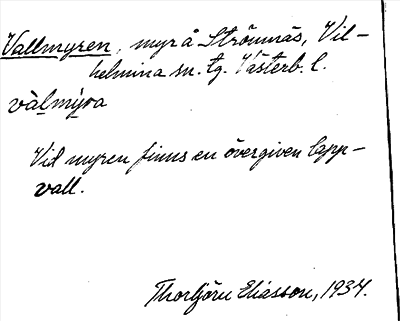 Vallmyren, myr å Strömnäs, Vil-
helmina sn. tg. Västerb. l.
vàlmýra
Vid myren finns en övergiven lapp-
vall.
Thorbjörn Eliasson, 1934.